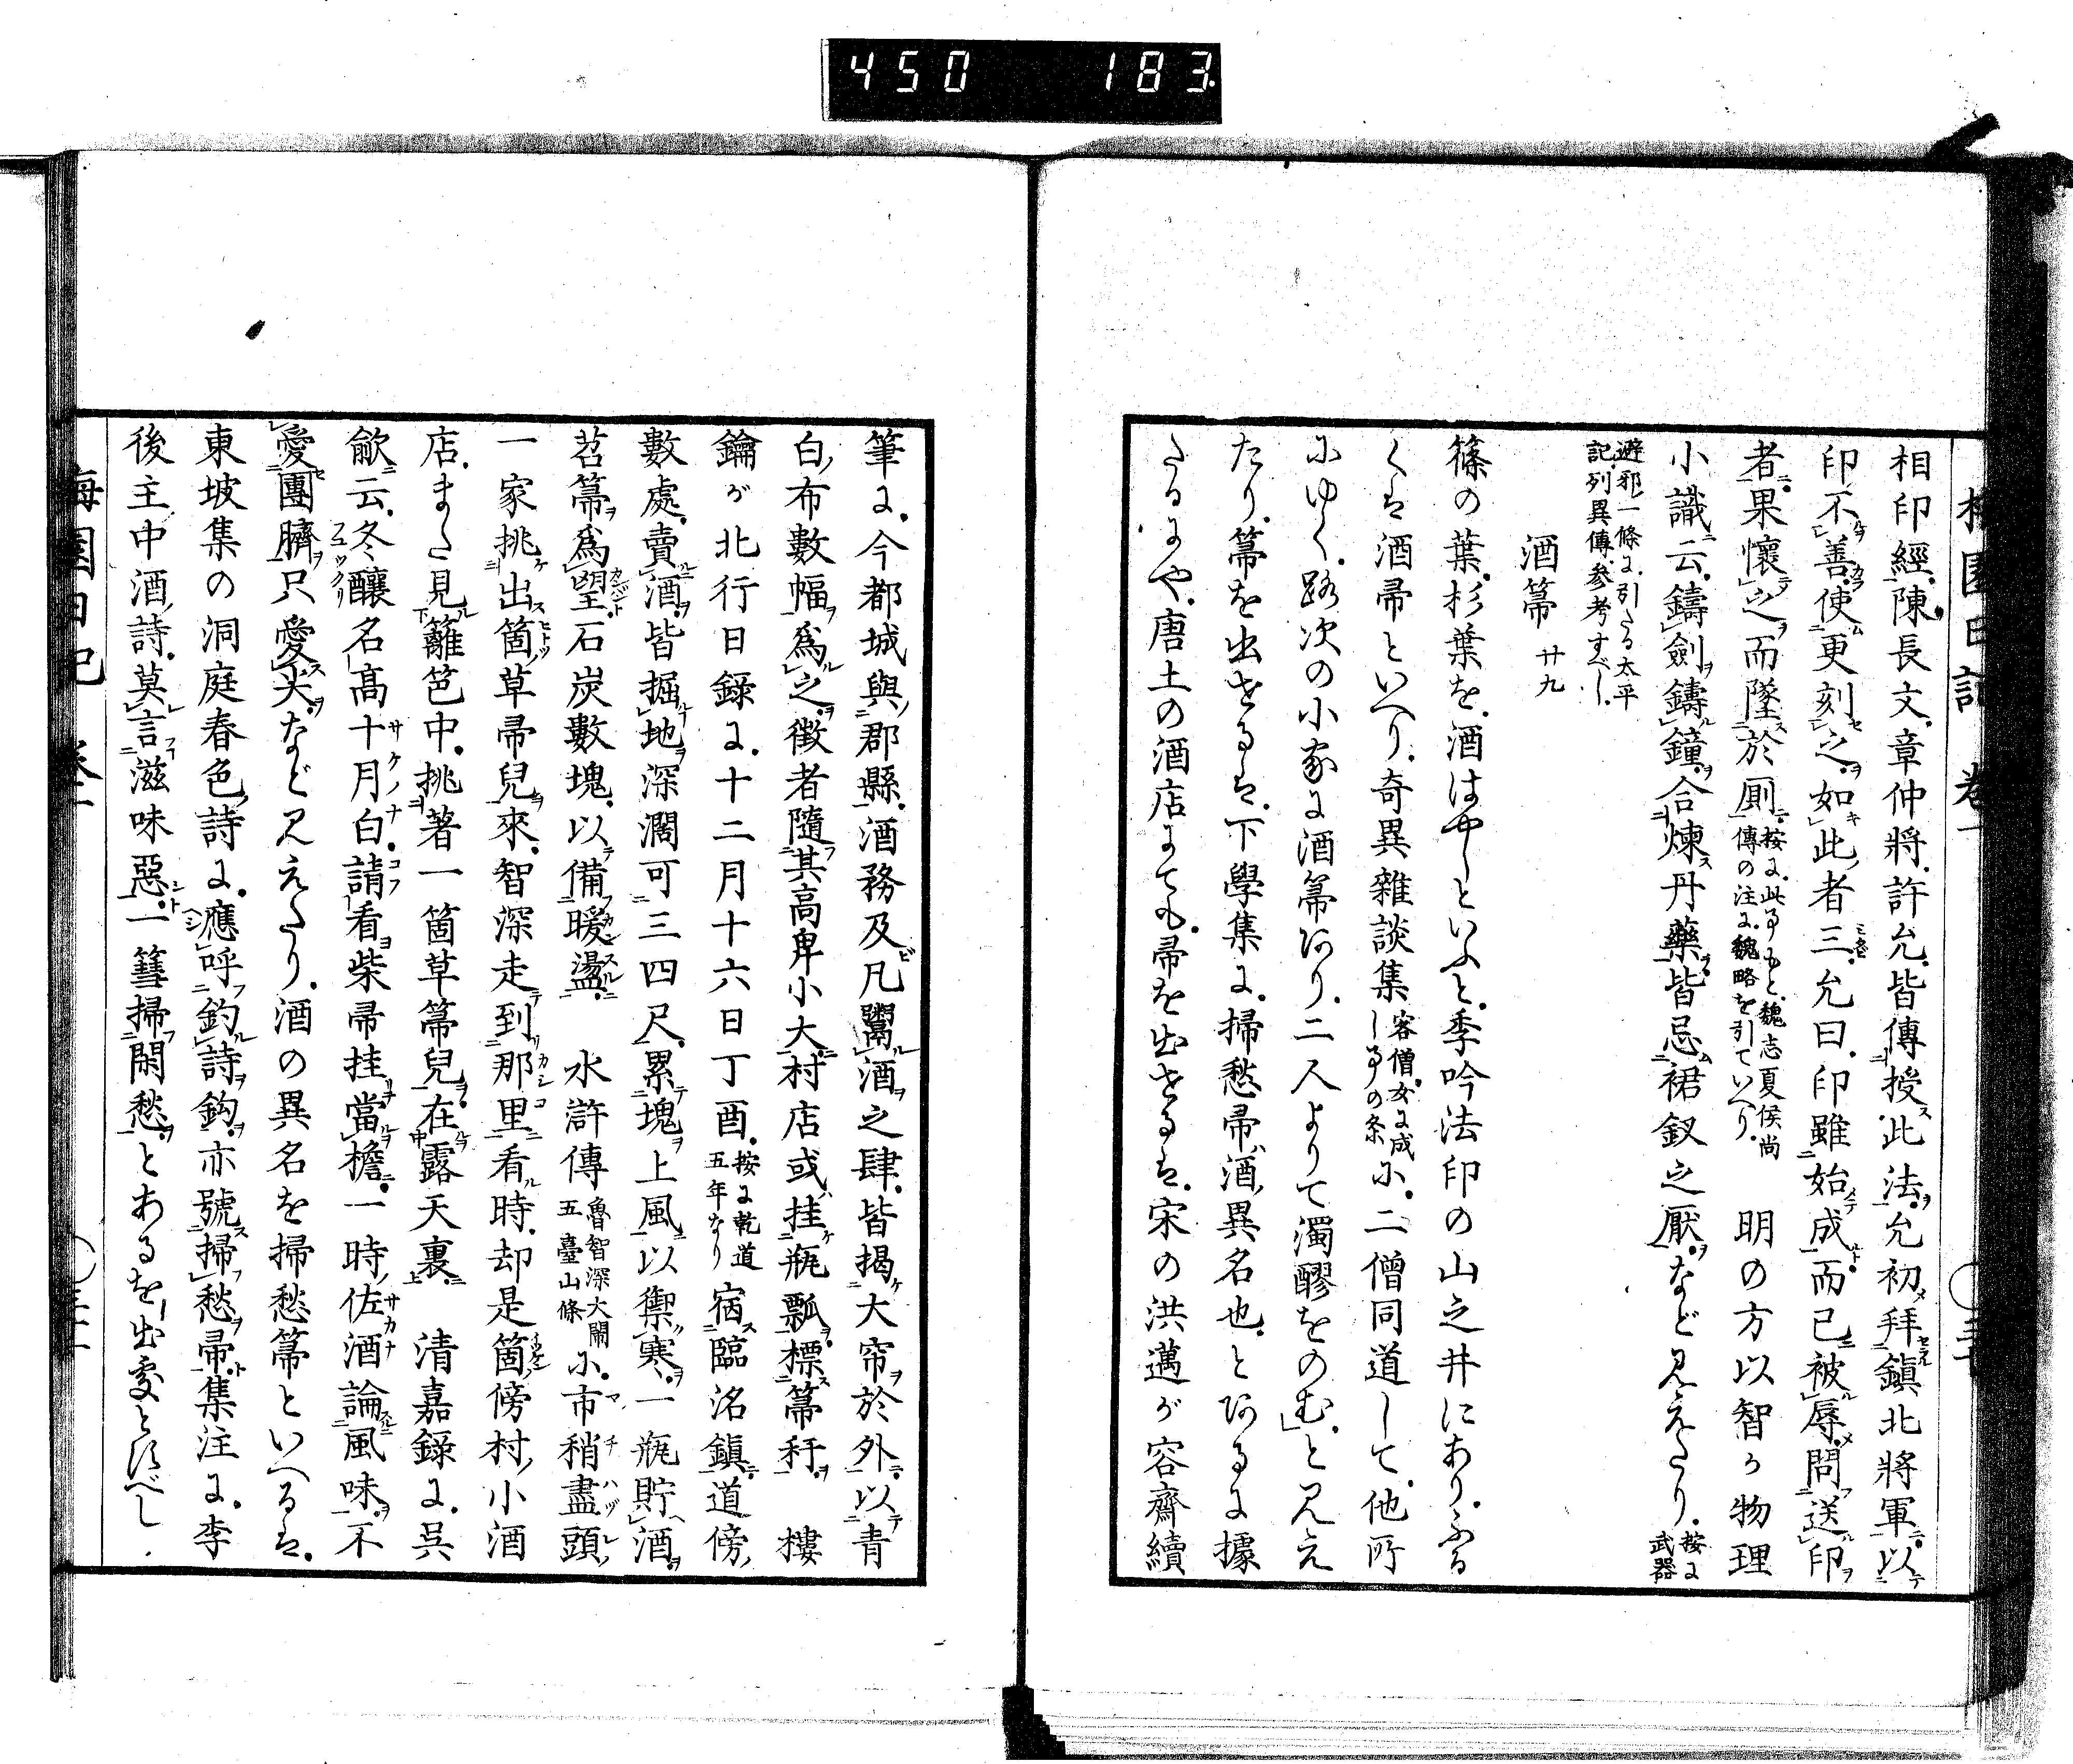 450 183
梅園日記 卷一
相印經陳長文章仲將許允皆傳授此法允初拜鎮北將軍以
印不善使更刻之如此者三允曰印雖始成而已被辱問送印
者果懷之而墜於厠按に此事もと魏志夏侯尚傳の注に魏略を引ていへり 明の方以智が物理
小識云鑄劍鑄鐘合煉丹藥皆忌裙釵之厭など見えたり按に武器
避邪一條に引たる太平記列異傳參考すべし
酒箒 廿九
篠の葉杉葉を酒はやしといふと季吟法印の山之井にありふる
くは酒帚といへり奇異雜談集客僧女に成し事の条に二僧同道して他所
にゆく路次の小家に酒箒あり二人よりて濁醪をのむと見え
たり箒を出せるは下學集に掃愁帚酒異名也とあるに據
たるにや唐土の酒店にても帚を出せるは宋の洪邁が容齋續
筆に今都城與郡縣酒務及凡鬻酒之肆皆揭大帘於外以青
白布數幅爲之徵者隨其高卑小大村店或挂瓶瓢標箒秆 樓
鑰が北行日錄に十二月十六日丁酉按に乾道五年なり宿臨洺鎮道傍
數處賣酒皆掘地深濶可三四尺累塊上風以禦寒一瓶貯酒
苕箒爲望石炭數塊以備暖盪 水滸傳魯智深大鬧五臺山條に市稍盡頭
一家挑出箇草帚兒來智深走到那里看時却是箇傍村小酒
店また見籬笆中挑著一箇草箒兒在露天裏 淸嘉錄に吳
歈云冬釀名高十月白請看柴帚挂當檐一時佐酒論風味不
愛團臍只愛尖など見えたり酒の異名を掃愁箒といへるは
東坡集の洞庭春色詩に應呼釣詩鈎亦號掃愁帚集注に李
後主中酒詩莫言滋味惡一篲掃閑愁とあるを出處とすべし
梅園日記 卷一